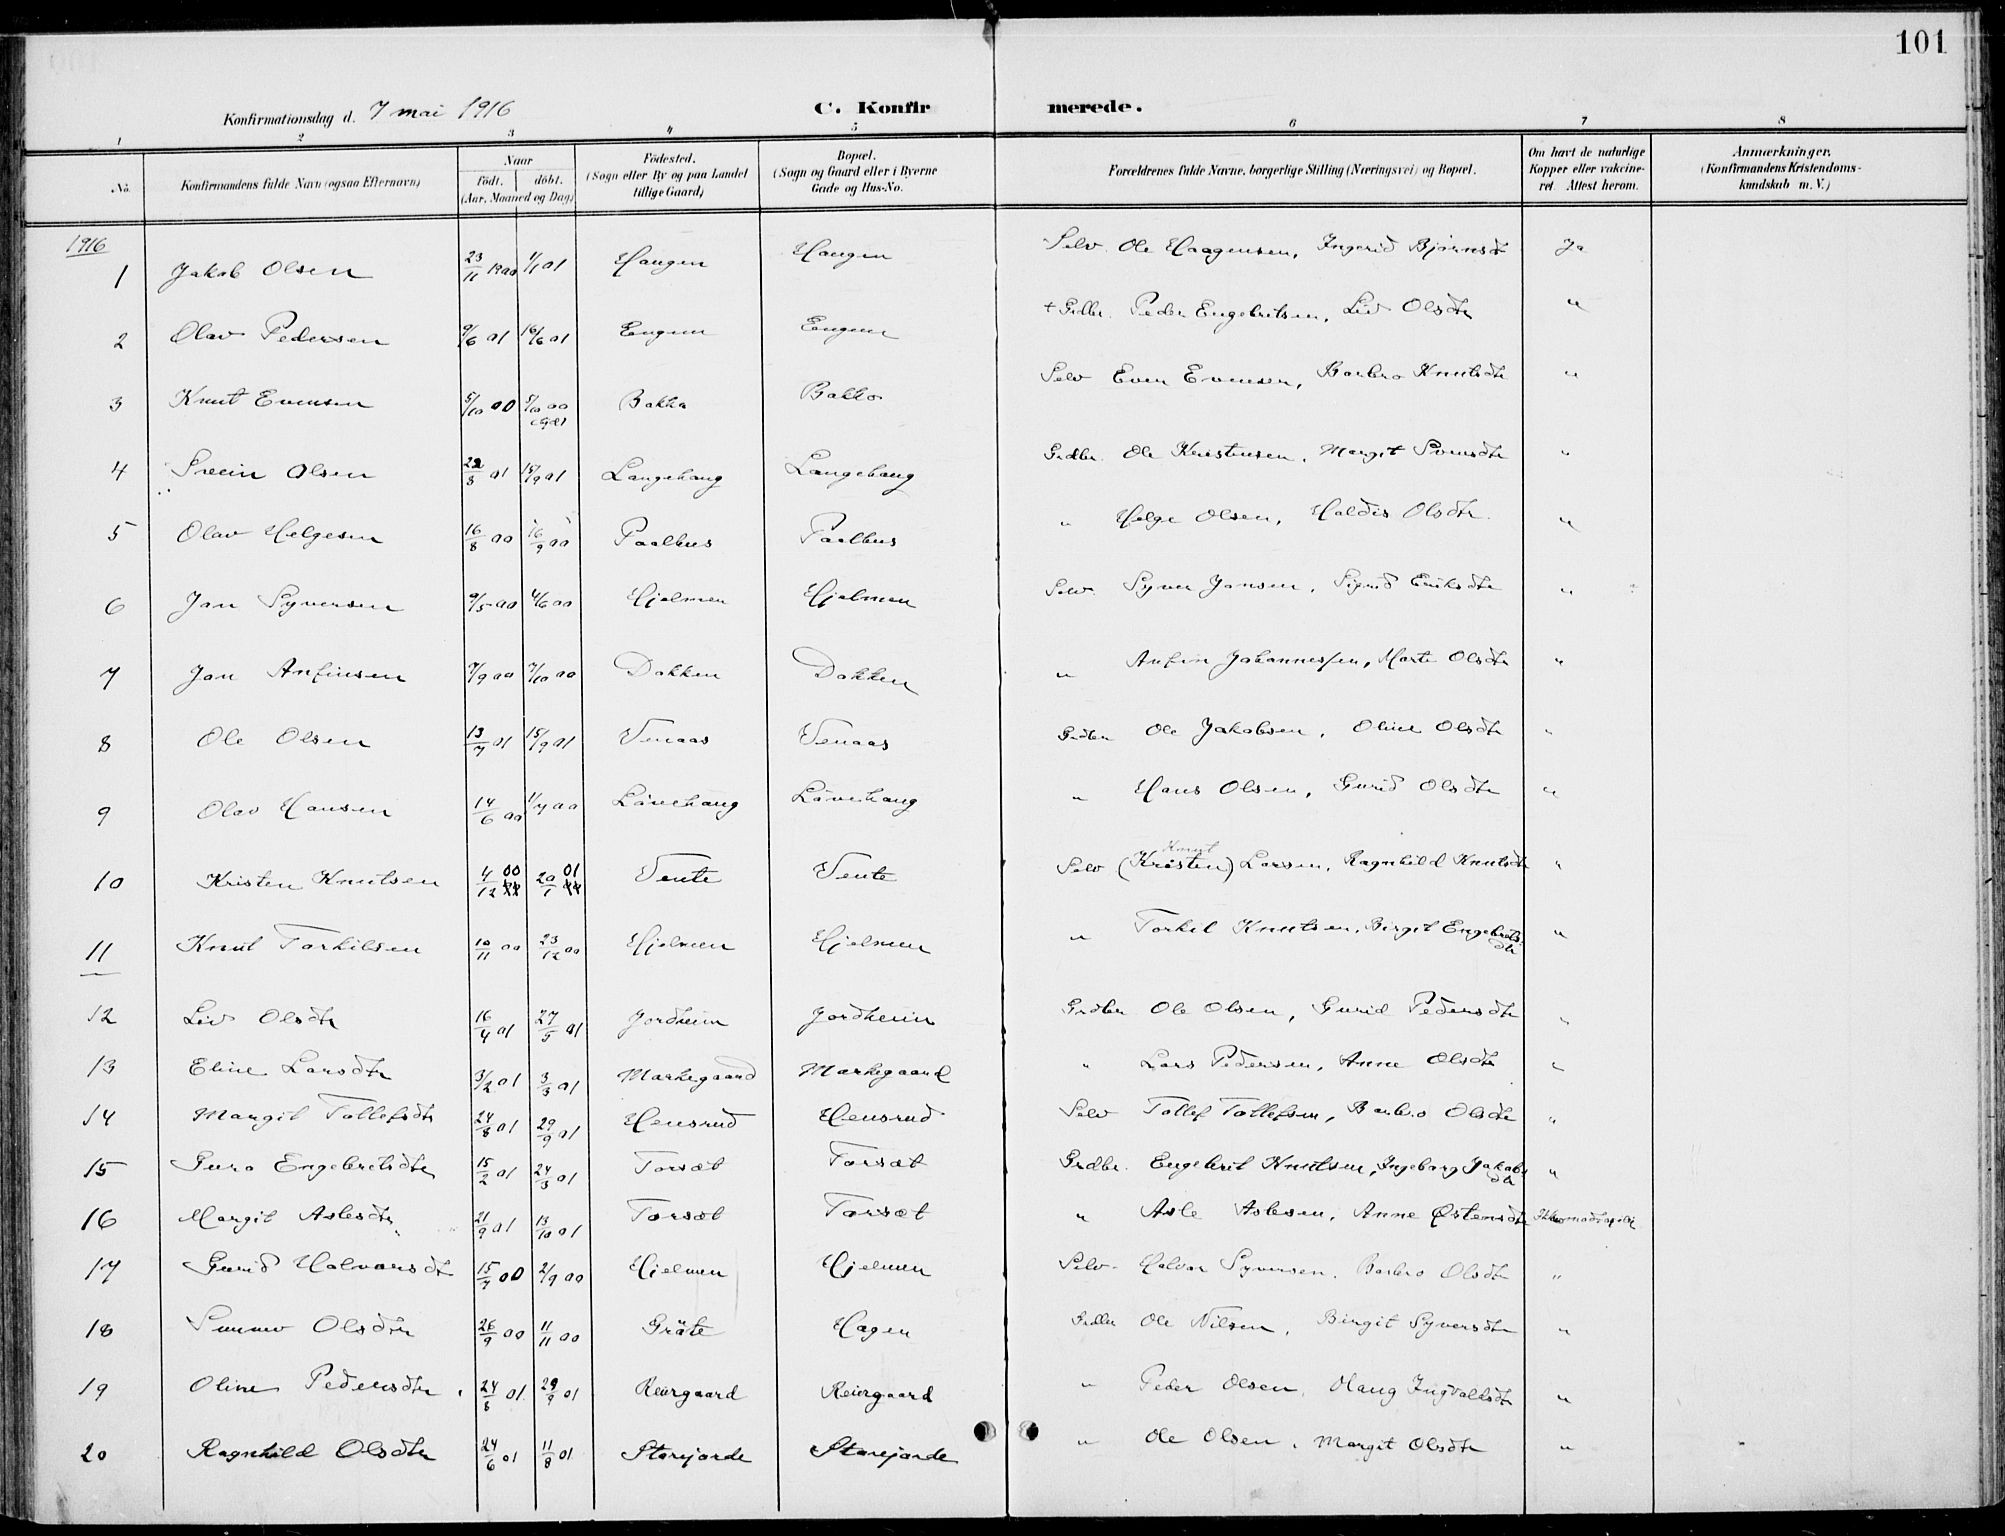 101
Konfirmationsdag d. 7 mai 1916 C. Konfirmerede.
1 2 3 4 5 6 7 8
No. Konfirmandens fulde Navn (ogsaa Efternavn) Naar födt. döbt. (Aar, Maaned og Dag) Födested. (Sogn eller By og paa Landet tillige Gaard) Bopæl. (Sogn og Gaard eller i Byerne Gade og Hus-No. Forældrenes fulde Navne, borgerlige Stilling (Næringsvei) og Bopæl. Om havt de naturlige Kopper eller vakcineret. Attest herom. Anmærkninger. (Konfirmandens Kristendomskundskab m. V.)
1916
1 Jakob Olsen 23/11 1900 1/1 01 Haugen Haugen Selv. Ole Haagensen, Ingerid Bjørnsdt Ja
2 Olav Pedersen 9/6 01 16/6 01 Engene Engene + Grdbr. Peder Engebritsen, Liv Olsdtr "
3 Knut Evensen 5/10 00 5/10 00 Bakko Bakko Selv Even Evensen, Barbro Knutsdtr "
4 Svein Olsen 22/8 01 15/9 01 Langehaug Langehaug Grdbr. Ole Kristensen, Margit Svensdtr "
5 Olav Helgesen 16/8 00 16/9 00 Paalhus Paalhus " Helge Olsen, Haldis Olsdtr. "
6 Jan Syversen 9/5 00 4/6 00 Hjelmen Hjelmen Selv. Syver Jansen, Sigrid Eriksdtr "
7 Jan Anfinsen 7/9 00 7/10 00 Dokken Dokken " Anfin Johannessen, Marte Olsdtr "
8 Ole Olsen 13/7 01 15/9 01 Venaas Venaas Grdbr Ole Jakobsen, Oline Olsdtr "
9 Olav Hansen 14/6 00 1/7 00 Lavehaug Lavehaug " Hans Olsen, Gurid Olsdtr "
10 Kristen Knutsen 4/12 00 20/1 01 Vente Vente Selv (Kristen) Knut Larsen, Ragnhild Knutsdtr "
11 Knut Torkilsen 10/11 00 23/12 00 Hjelmen Hjelmen " Torkil Knutsen, Birgit Engebretsdtr "
12 Liv Olsdtr 16/4 01 27/5 01 Jordheim Jordheim Grdbr Ole Olsen, Gurid Pedersdtr "
13 Eline Larsdtr 3/2 01 3/3 01 Markegaard Markegaard " Lars Pedersen, Anne Olsdtr "
14 Margit Tollefsdtr 24/8 01 29/9 01 Hensrud Hensrud Selv Tollef Tollefsen, Barbro Olsdtr "
15 Guro Engebretsdtr 15/2 01 24/3 01 Torsæt Torsæt Grdbr. Engebret Knutsen, Ingeborg Jakobsdtr "
16 Margit Aslesdtr 21/9 01 13/10 01 Torsæt Torsæt " Asle Aslesen, Anne Østensdtr
17 Gurid Halvorsdtr 15/7 00 2/9 00 Hjelmen Hjelmen Selv. Halvor Syversen, Barbro Olsdtr "
18 Sunnev Olsdtr 26/9 00 11/11 00 Gräte Hagen Grdbr Ole Nilsen, Birgit Syversdtr "
19 Oline Pedersdtr 24/8 01 29/9 01 Reiergaard Reiergaard " Peder Olsen, Haug Ingvaldsdtr "
20 Ragnhild Olsdtr 24/6 01 11/8 01 Storejorde Storejorde " Ole Olsen, Margit Olsdtr "